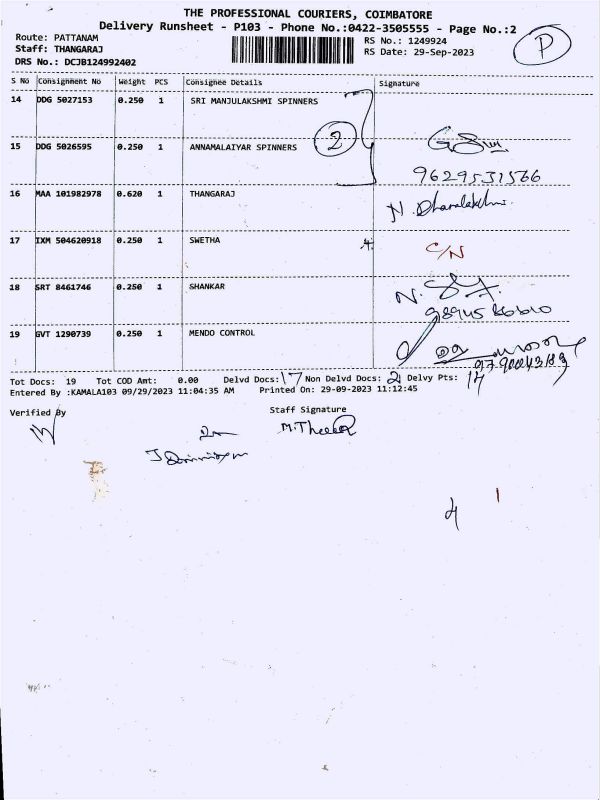 THE PROFESSIONAL COURIERS, COIMBATORE
Delivery Runsheet - P103 - Phone No.:0422-3505555 - Page No.:2
Route: PATTANAM RS No.: 1249924 P
Staff: THANGARAJ RS Date: 29-Sep-2023
DRS No.: DCJB124992402
S No Consignment No Weight PCS Consignee Details Signature
14 DDG 5027153 0.250 1 SRI MANJULAKSHMI SPINNERS
2
15 DDG 5026595 0.250 1 ANNAMALAIYAR SPINNERS
9629531566
16 MAA 101982978 0.620 1 THANGARAJ N. Dhanalakshmi
17 IXM 504620918 0.250 1 SWETHA C/N
18 SRT 8461746 0.250 1 SHANKAR
19 GVT 1290739 0.250 1 MENDO CONTROL
Tot Docs: 19 Tot COD Amt: 0.00 Delvd Docs: 17 Non Delvd Docs: 2 Delvy Pts: 14
Entered By :KAMALA103 09/29/2023 11:04:35 AM Printed On: 29-09-2023 11:12:45
Verified By Staff Signature